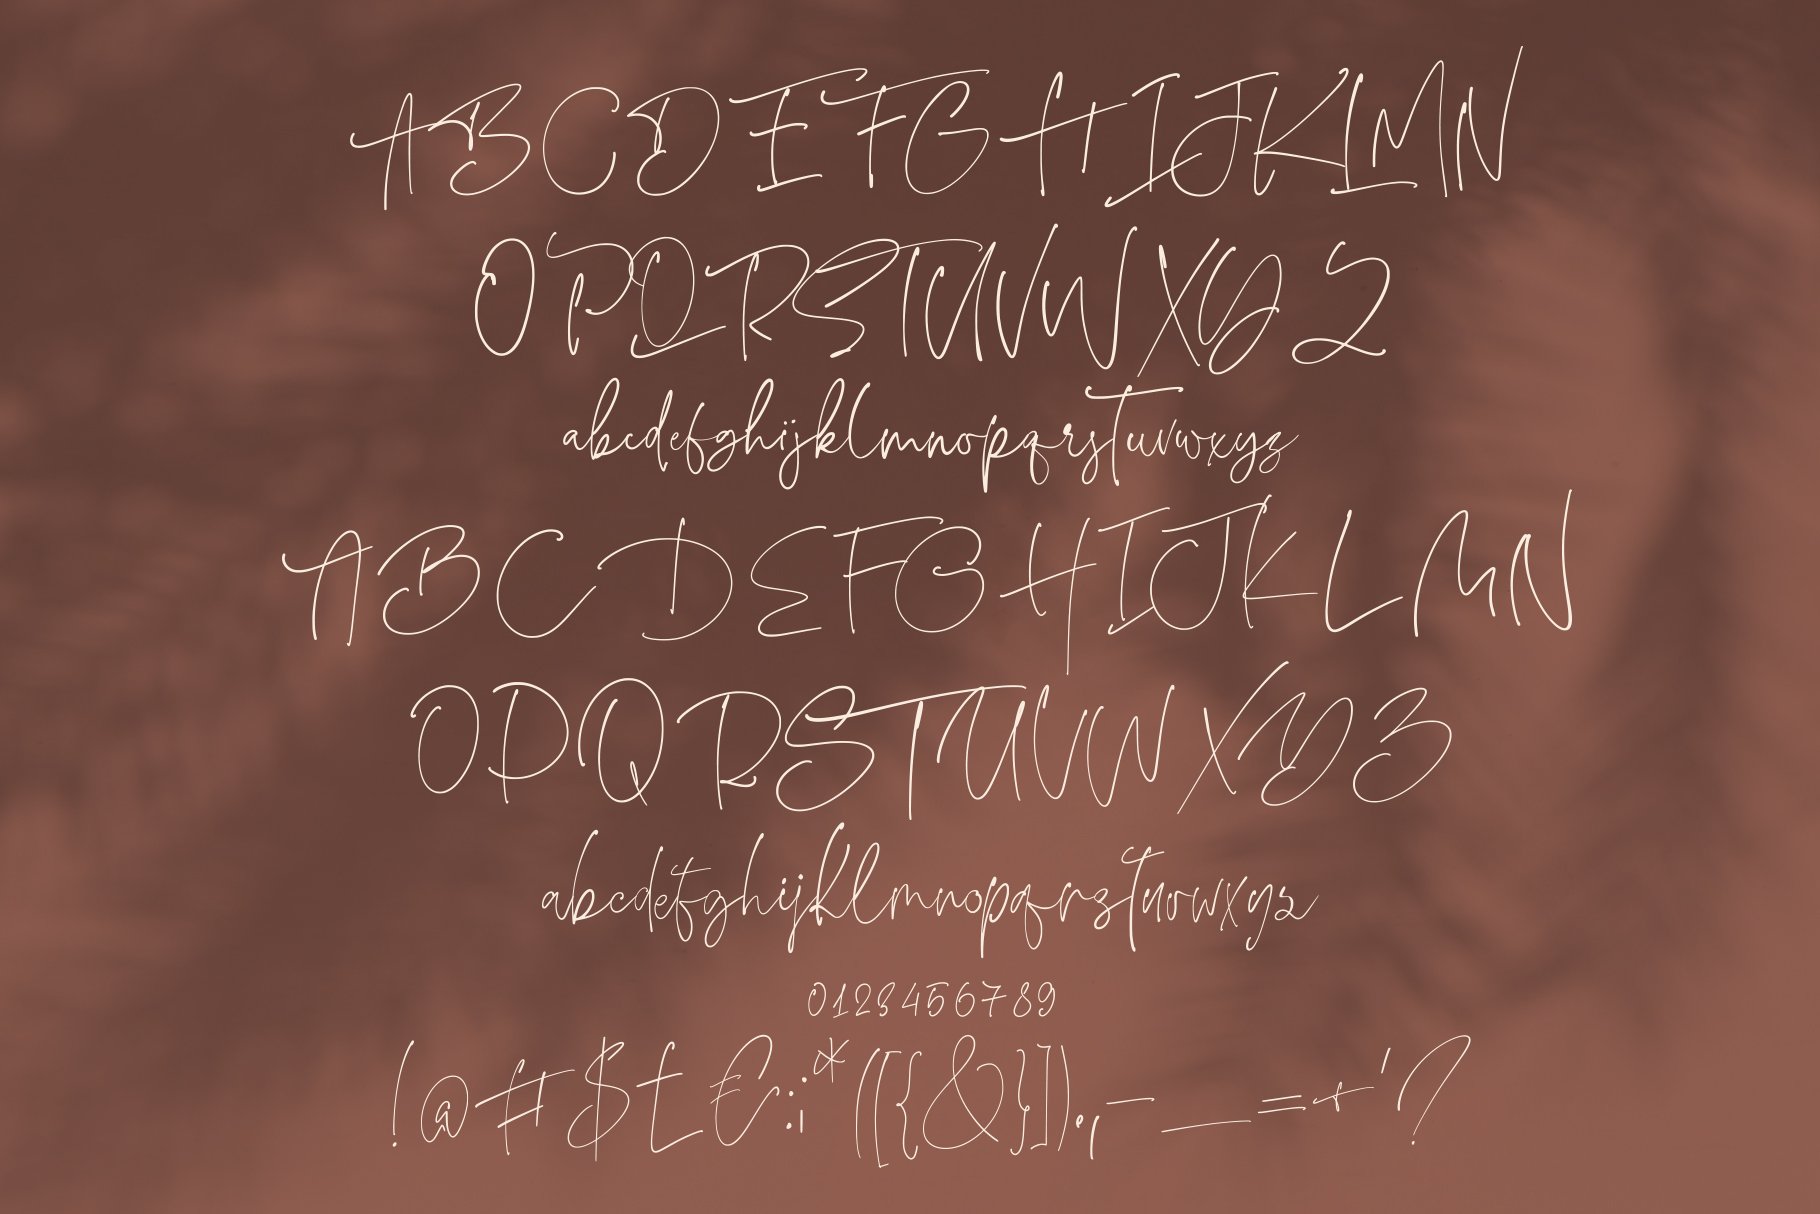 ABCDEFGHIJKLMN
OPQRSTUVWXYZ
abcdefghijklmnopqrstuvwxyz
ABCDEFGHIJKLMN
OPQRSTUVWXYZ
abcdefghijklmnopqrstuvwxyz
0123456789
!@#$£€:;*([{&}]).,-_=+'?